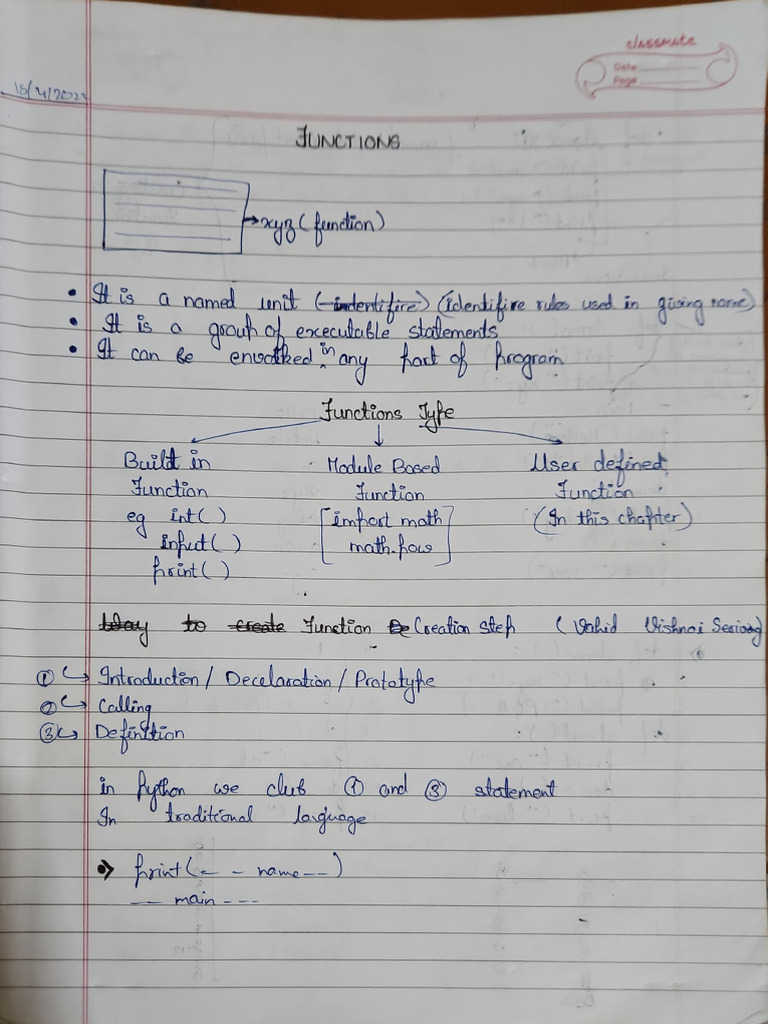 classmate
Date
Page
FUNCTIONS
xyz (function)
• It is a named unit (indentifire) (identifire rules used in giving name)
• It is a group of executable statements
• It can be envocked in any part of program
Functions Type
Build in Module Based User defined
Function Function Function
eg int( ) [import math (In this chapter)
input( ) math.pow]
print( )
to create Function Creation step (Vahid Vishnoi
① ↪ Introduction / Decelaration / Prototype
② ↪ Calling
③ ↪ Definition
in Python we club ① and ③ statement
In traditional language
print(_ _ name _ _)
_ _ main _ _ _